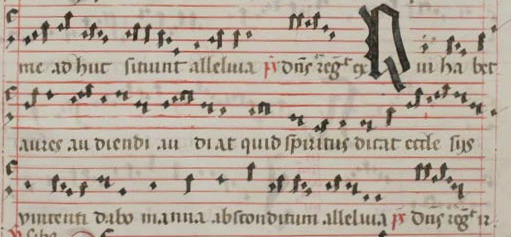 me ad huc sitiunt alleluia ps dns reg^t ex Qui ha bet
aures au diendi au di at quid spiritus dicat eccle siis
vincenti dabo manna absconditum alleluia ps dns reg^t ir